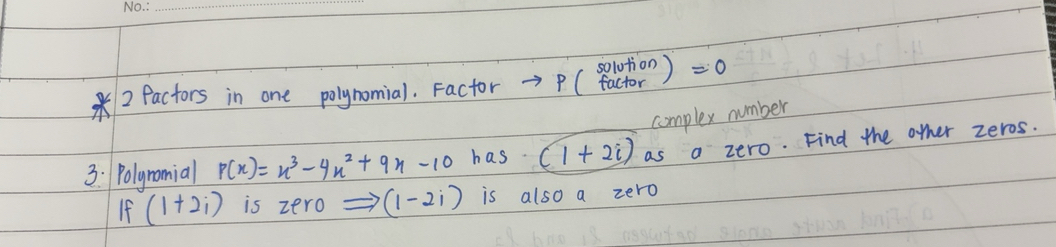 No.:
* 2 factors in one polynomial. Factor → P ( solution factor ) = 0
complex number
3. Polynomial P(x) = x³ - 4x² + 9x - 10 has (1 + 2i) as a zero. Find the other zeros.
If (1+2i) is zero ⟹ (1-2i) is also a zero